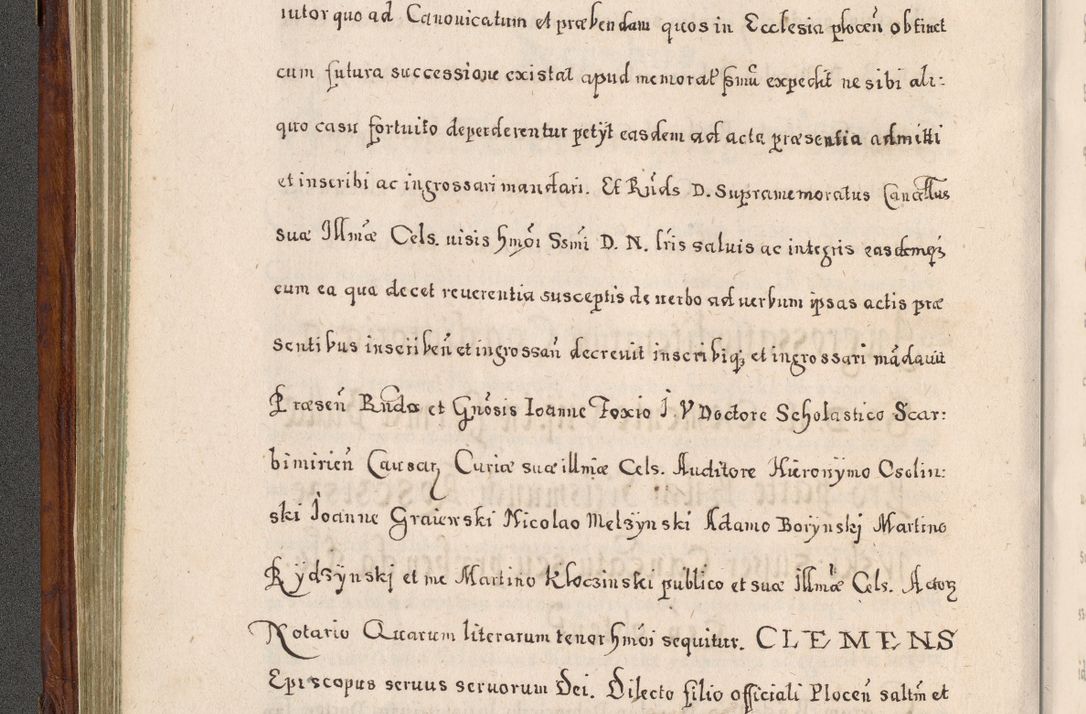 iutor quo ad Canonicatum et præbendam quos in Ecclesia plocen̄ obtinet
cum futura successione existat apud memorat̃ ſm̃u expedit ne sibi ali:
quo casu fortuito deperderentur petÿt easdem ad acta præsentia admitti
et inscribi ac ingrossari mandari. Et Rn̄ds D. Supramemoratus Cancellus
suæ Illm̃æ Cels. uisis hm̃õi Ssm̃i D. N. lr̃is saluis ac integris easdemqȝ
cum ea qua decet reuerentia susceptis de uerbo ad uerbum ipsas actis præ
sentibus inscriben̄ et ingrossan̄ decreuit inscribiqȝ et ingrossari mãdauit
Præsen̄ Rnd̃o et Gnõsis Ioanne Foxio I. V Doctore Scholastico Scar:
bimirien̄ Causarꝝ Curiæ suæ illmæ Cels. Auditore Hieronÿmo Osolin:
ski Ioanne Graiewski Nicolao Melzÿnski Adamo Borÿnskj Martino
Rÿdzÿnskj et me Martino Kłoczinski publico et suæ illm̃æ Cels. Actorꝝ
Notario Quarum literarum tenor hm̃õi sequitur. CLEMENS
Episcopus seruus seruorum Dei. Dilecto filio officiali Plocen̄ saltm̃ et